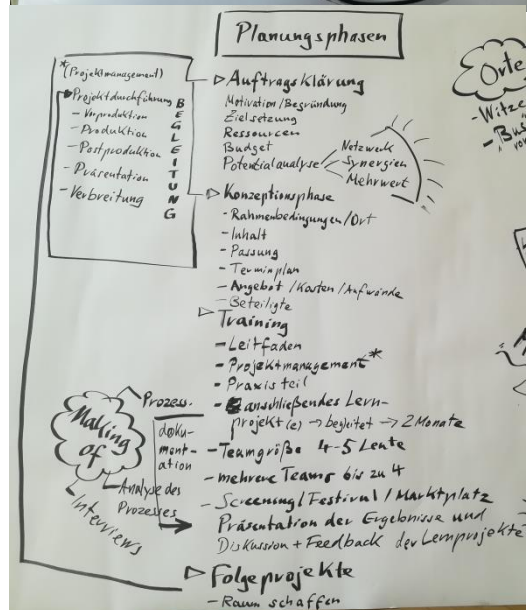 Planungsphasen
* (Projektmanagement)
Projektdurchführung
- Vorproduktion
- Produktion
- Postproduktion
- Präsentation
- Verbreitung
BEGLEITUNG
Auftragsklärung
Motivation/Begründung
Zielsetzung
Ressourcen
Budget
Potentialanalyse
Netzwerk
Synergien
Mehrwert
Konzeptionsphase
- Rahmenbedingungen/Ort
- Inhalt
- Passung
- Terminplan
- Angebot/Kosten/Aufwände
- Beteiligte
Training
- Leitfaden
- Projektmanagement*
- Praxisteil
- anschließendes Lern-
projekt(e) → begleitet → 2 Monate
- Teamgröße 4-5 Leute
- mehrere Teams bis zu 4
- Screening/Festival/Marktplatz
Präsentation der Ergebnisse und
Diskussion + Feedback der Lernprojekte
Making
of
Prozess-
doku-
ment-
ation
Analyse des
Prozesses
Interviews
Folgeprojekte
- Raum schaffen
Orte